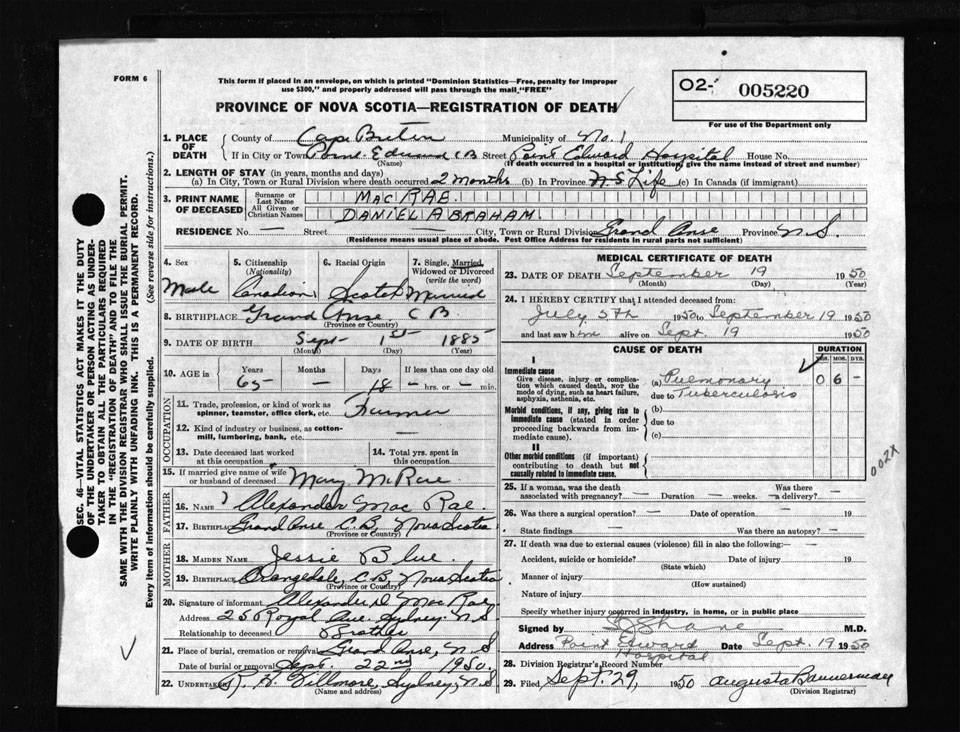 FORM 6
This form if placed in an envelope, on which is printed "Dominion Statistics—Free, penalty for improper
use $300," and properly addressed will pass through the mail "FREE"
PROVINCE OF NOVA SCOTIA—REGISTRATION OF DEATH
02- 005220
For use of the Department only
1. PLACE OF DEATH
County of Cape Breton Municipality of No. 1
If in City or Town Point Edward C B Street Point Edward Hospital House No.
(Name) (If death occurred in a hospital or institution, give the name instead of street and number)
2. LENGTH OF STAY (in years, months and days)
(a) In City, Town or Rural Division where death occurred 2 months (b) in Province N S Life (c) In Canada (if immigrant)
3. PRINT NAME OF DECEASED
Surname or Last Name MAC RAE.
All Given or Christian Names DANIEL ABRAHAM.
RESIDENCE No. — Street — City, Town or Rural Division Grand Anse Province N.S.
(Residence means usual place of abode. Post Office Address for residents in rural parts not sufficient)
4. Sex
Male
5. Citizenship (Nationality)
Canadian
6. Racial Origin
Scotch
7. Single, Married, Widowed or Divorced (write the word)
Married
8. BIRTHPLACE Grand Anse C B
(Province or Country)
9. DATE OF BIRTH Sept 1st 1885
(Month) (Day) (Year)
10. AGE in Years Months Days If less than one day old
65 — 18 — hrs. or — min.
OCCUPATION
11. Trade, profession, or kind of work as spinner, teamster, office clerk, etc. Farmer
12. Kind of industry or business, as cotton-mill, lumbering, bank, etc. —
13. Date deceased last worked at this occupation
14. Total yrs. spent in this occupation
15. If married give name of wife or husband of deceased Mary McRae
FATHER
16. NAME Alexander Mac Rae
17. BIRTHPLACE Grand Anse C.B, Nova Scotia
(Province or Country)
MOTHER
18. MAIDEN NAME Jessie Blue.
19. BIRTHPLACE Orangedale, C.B, Nova Scotia
(Province or Country)
20. Signature of informant Alexander D. MacRae
Address 25 Royal Ave. Sydney. N.S.
Relationship to deceased Brother
21. Place of burial, cremation or removal Grand Anse, N S
Date of burial or removal Sept. 22nd 1950.
22. Undertaker R. H. Fillmore, Sydney, N.S
(Name and address)
MEDICAL CERTIFICATE OF DEATH
23. DATE OF DEATH September 19 1950
(Month) (Day) (Year)
24. I HEREBY CERTIFY that I attended deceased from:
July 5th 1950 to September 19 1950
and last saw him alive on Sept. 19 1950
CAUSE OF DEATH
DURATION
YRS. MOS. DYS.
I
Immediate cause
Give disease, injury or complication which caused death, NOT the mode of dying, such as heart failure, asphyxia, asthenia, etc.
(a) Pulmonary
due to Tuberculosis
0 6 -
Morbid conditions, if any, giving rise to immediate cause (stated in order proceeding backwards from immediate cause).
(b)
due to
(c)
II
Other morbid conditions (if important) contributing to death but not causally related to immediate cause.
002X
25. If a woman, was the death associated with pregnancy? — Duration — weeks. Was there a delivery? —
26. Was there a surgical operation? — Date of operation — 19
State findings — Was there an autopsy? —
27. If death was due to external causes (violence) fill in also the following:—
Accident, suicide or homicide? Date of injury 19
(State which)
Manner of injury
(How sustained)
Nature of injury
Specify whether injury occurred in industry, in home, or in public place
Signed by Shane M.D.
Address Point Edward Hospital Date Sept. 19 1950
28. Division Registrar's Record Number
29. Filed Sept. 29, 1950 Augusta Bannerman
(Division Registrar)
SEC. 46—VITAL STATISTICS ACT MAKES IT THE DUTY
OF THE UNDERTAKER OR PERSON ACTING AS UNDER-
TAKER TO OBTAIN ALL THE PARTICULARS REQUIRED
IN THE "REGISTRATION OF DEATH" AND TO FILE THE
SAME WITH THE DIVISION REGISTRAR WHO SHALL ISSUE THE BURIAL PERMIT.
WRITE PLAINLY WITH UNFADING INK. THIS IS A PERMANENT RECORD.
Every item of information should be carefully supplied. (See reverse side for instructions.)